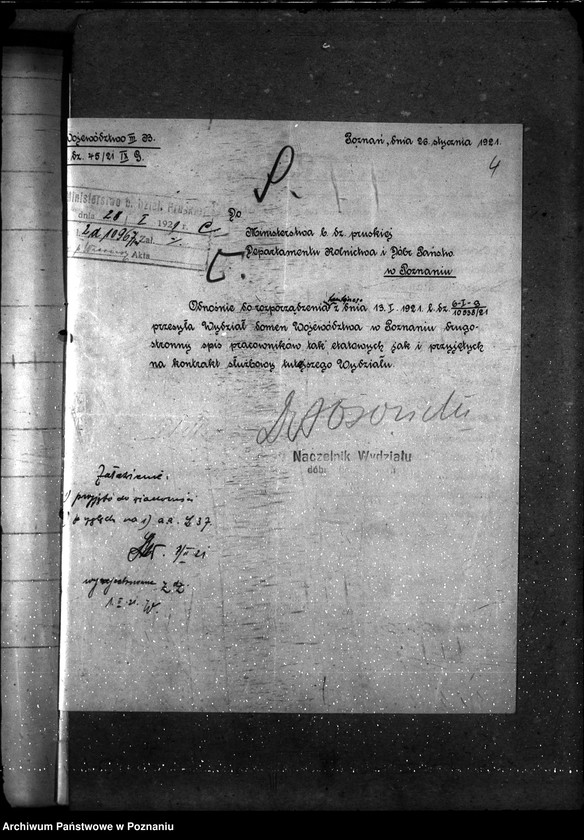 Województwo III B.
L. dz. 45/21 IX G.
Poznań, dnia 26. stycznia 1921.
4
P.
Ministerstwo b. Dziel. Pruskiej
dnia 28 I 1921 r. C
I.d. 10967 Zał.
Akta
Do
Ministerstwa b. dz. pruskiej
Departamentu Rolnictwa i Dóbr Państw.
w Poznaniu
Odnośnie do rozporządzenia z dnia 13. I. 1921. l. dz. 6-I-G 10338/21
przesyła Wydział domen Województwa w Poznaniu drugo-
stronny spis pracowników tak etatowych jak i przyjętych
na kontrakt służbowy tutejszego Wydziału.
Naczelnik Wydziału
dóbr
Załatwienie:
1) przyjęto do wiadomości
2) a. a. L 37
1/II 21
Archiwum Państwowe w Poznaniu